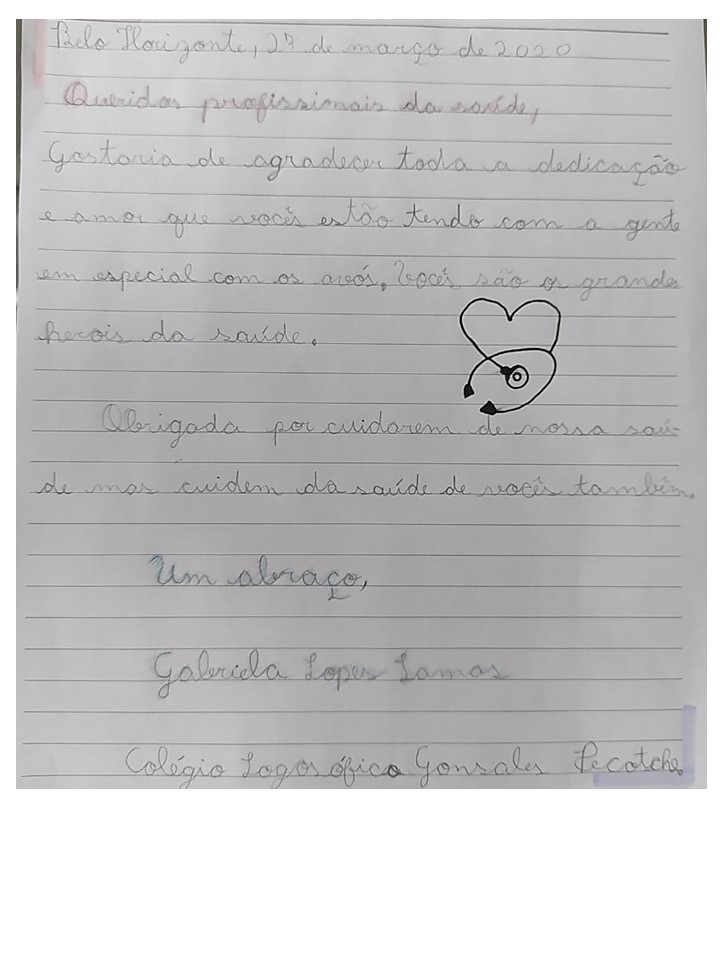 Belo Horizonte, 27 de março de 2020
Queridos profissionais da saúde,
Gostaria de agradecer toda a dedicação
e amor que vocês estão tendo com a gente
em especial com os avós. Vocês são os grandes
herois da saúde.
Obrigada por cuidarem de nossa saú-
de mas cuidem da saúde de vocês também.
Um abraço,
Gabriela Lopes Lamas
Colégio Logosófico Gonsales Pecotche.